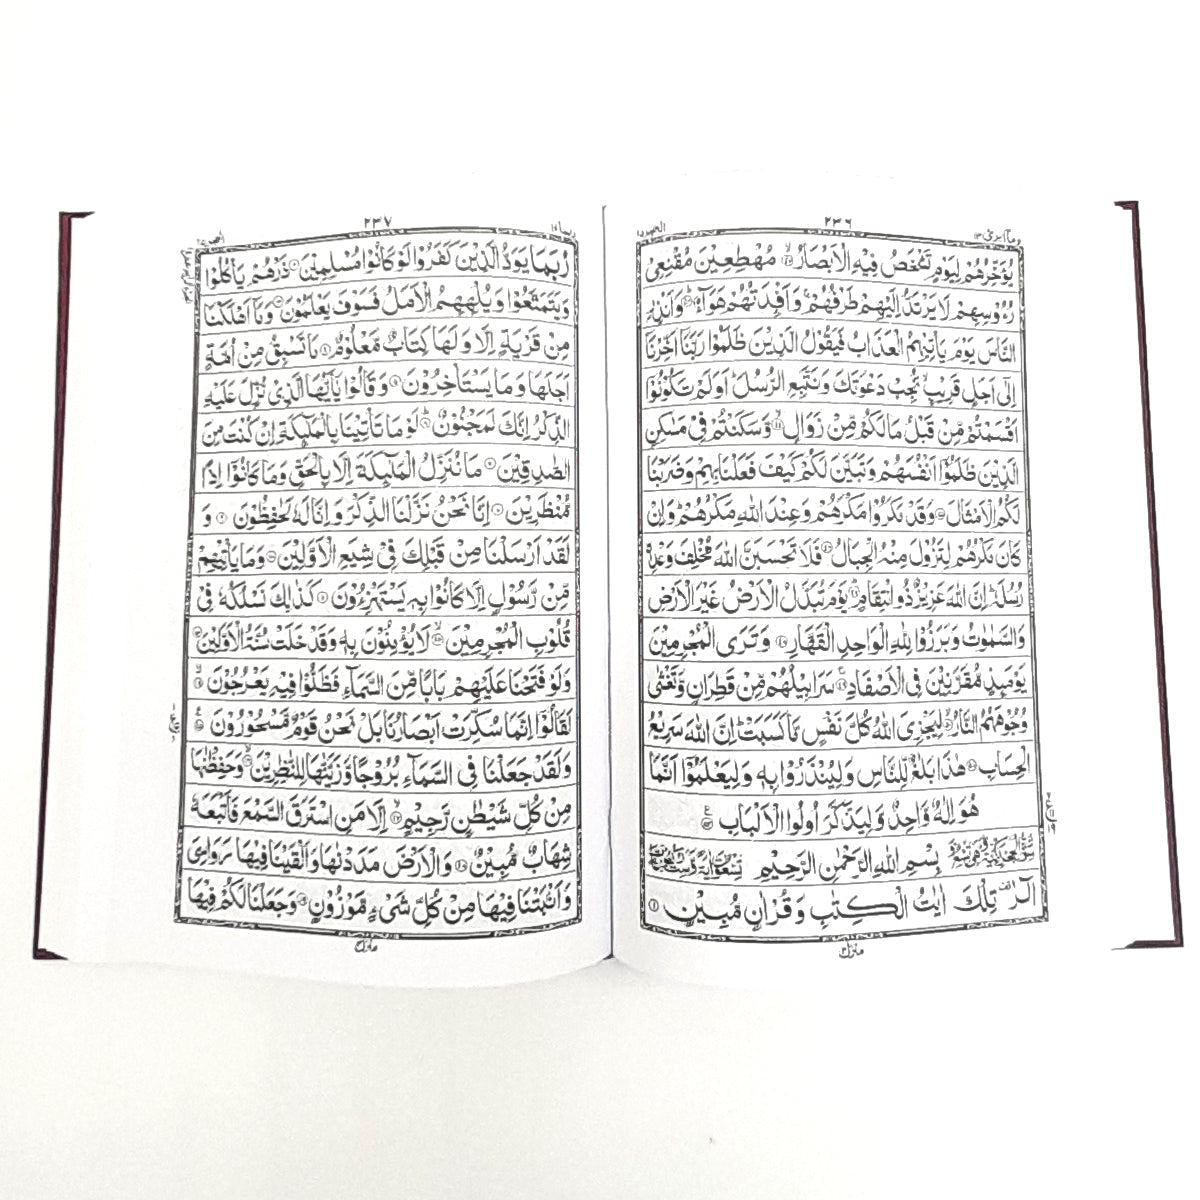 ٢٣٦
يُؤَخِّرُهُمْ لِيَوْمٍ تَشْخَصُ فِيْهِ الْاَبْصَارُ ۙ مُهْطِعِيْنَ مُقْنِعِيْ
رُءُوْسِهِمْ لَا يَرْتَدُّ اِلَيْهِمْ طَرْفُهُمْ ۚ وَاَفْـِٕدَتُهُمْ هَوَآءٌ ؕ وَاَنْذِرِ
النَّاسَ يَوْمَ يَاْتِيْهِمُ الْعَذَابُ فَيَقُوْلُ الَّذِيْنَ ظَلَمُوْا رَبَّنَاۤ اَخِّرْنَاۤ
اِلٰۤى اَجَلٍ قَرِيْبٍ ۙ نُّجِبْ دَعْوَتَكَ وَنَتَّبِعِ الرُّسُلَ ؕ اَوَلَمْ تَكُوْنُوْۤا
اَقْسَمْتُمْ مِّنْ قَبْلُ مَا لَكُمْ مِّنْ زَوَالٍ ۙ وَّسَكَنْتُمْ فِيْ مَسٰكِنِ
الَّذِيْنَ ظَلَمُوْۤا اَنْفُسَهُمْ وَتَبَيَّنَ لَكُمْ كَيْفَ فَعَلْنَا بِهِمْ وَضَرَبْنَا
لَكُمُ الْاَمْثَالَ وَقَدْ مَكَرُوْا مَكْرَهُمْ وَعِنْدَ اللهِ مَكْرُهُمْ ؕ وَاِنْ
كَانَ مَكْرُهُمْ لِتَزُوْلَ مِنْهُ الْجِبَالُ فَلَا تَحْسَبَنَّ اللهَ مُخْلِفَ وَعْدِهٖ
رُسُلَهٗ ؕ اِنَّ اللهَ عَزِيْزٌ ذُو انْتِقَامٍ ؕ يَوْمَ تُبَدَّلُ الْاَرْضُ غَيْرَ الْاَرْضِ
وَالسَّمٰوٰتُ وَبَرَزُوْا لِلّٰهِ الْوَاحِدِ الْقَهَّارِ وَتَرَى الْمُجْرِمِيْنَ
يَوْمَىِٕذٍ مُّقَرَّنِيْنَ فِي الْاَصْفَادِ ۚ سَرَابِيْلُهُمْ مِّنْ قَطِرَانٍ وَّتَغْشٰى
وُجُوْهَهُمُ النَّارُ ۙ لِيَجْزِيَ اللهُ كُلَّ نَفْسٍ مَّا كَسَبَتْ ؕ اِنَّ اللهَ سَرِيْعُ
الْحِسَابِ هٰذَا بَلٰغٌ لِّلنَّاسِ وَلِيُنْذَرُوْا بِهٖ وَلِيَعْلَمُوْۤا اَنَّمَا
هُوَ اِلٰهٌ وَّاحِدٌ وَّلِيَذَّكَّرَ اُولُوا الْاَلْبَابِ
بِسْمِ اللهِ الرَّحْمٰنِ الرَّحِيْمِ
الٓرٰ ۫ تِلْكَ اٰيٰتُ الْكِتٰبِ وَقُرْاٰنٍ مُّبِيْنٍ ۝١
٢٣٧
رُبَمَا يَوَدُّ الَّذِيْنَ كَفَرُوْا لَوْ كَانُوْا مُسْلِمِيْنَ ذَرْهُمْ يَاْكُلُوْا
وَيَتَمَتَّعُوْا وَيُلْهِهِمُ الْاَمَلُ فَسَوْفَ يَعْلَمُوْنَ وَمَاۤ اَهْلَكْنَا
مِنْ قَرْيَةٍ اِلَّا وَلَهَا كِتَابٌ مَّعْلُوْمٌ مَا تَسْبِقُ مِنْ اُمَّةٍ
اَجَلَهَا وَمَا يَسْتَاْخِرُوْنَ وَقَالُوْا يٰۤاَيُّهَا الَّذِيْ نُزِّلَ عَلَيْهِ
الذِّكْرُ اِنَّكَ لَمَجْنُوْنٌ ؕ لَوْ مَا تَاْتِيْنَا بِالْمَلٰٓىِٕكَةِ اِنْ كُنْتَ مِنَ
الصّٰدِقِيْنَ مَا نُنَزِّلُ الْمَلٰٓىِٕكَةَ اِلَّا بِالْحَقِّ وَمَا كَانُوْۤا اِذًا
مُّنْظَرِيْنَ اِنَّا نَحْنُ نَزَّلْنَا الذِّكْرَ وَاِنَّا لَهٗ لَحٰفِظُوْنَ وَ
لَقَدْ اَرْسَلْنَا مِنْ قَبْلِكَ فِيْ شِيَعِ الْاَوَّلِيْنَ وَمَا يَاْتِيْهِمْ
مِّنْ رَّسُوْلٍ اِلَّا كَانُوْا بِهٖ يَسْتَهْزِءُوْنَ كَذٰلِكَ نَسْلُكُهٗ فِيْ
قُلُوْبِ الْمُجْرِمِيْنَ ۙ لَا يُؤْمِنُوْنَ بِهٖ وَقَدْ خَلَتْ سُنَّةُ الْاَوَّلِيْنَ
وَلَوْ فَتَحْنَا عَلَيْهِمْ بَابًا مِّنَ السَّمَآءِ فَظَلُّوْا فِيْهِ يَعْرُجُوْنَ ۙ
لَقَالُوْۤا اِنَّمَا سُكِّرَتْ اَبْصَارُنَا بَلْ نَحْنُ قَوْمٌ مَّسْحُوْرُوْنَ
وَلَقَدْ جَعَلْنَا فِي السَّمَآءِ بُرُوْجًا وَّزَيَّنّٰهَا لِلنّٰظِرِيْنَ ۙ وَحَفِظْنٰهَا
مِنْ كُلِّ شَيْطٰنٍ رَّجِيْمٍ ۙ اِلَّا مَنِ اسْتَرَقَ السَّمْعَ فَاَتْبَعَهٗ
شِهَابٌ مُّبِيْنٌ وَالْاَرْضَ مَدَدْنٰهَا وَاَلْقَيْنَا فِيْهَا رَوَاسِيَ
وَاَنْۢبَتْنَا فِيْهَا مِنْ كُلِّ شَيْءٍ مَّوْزُوْنٍ وَجَعَلْنَا لَكُمْ فِيْهَا